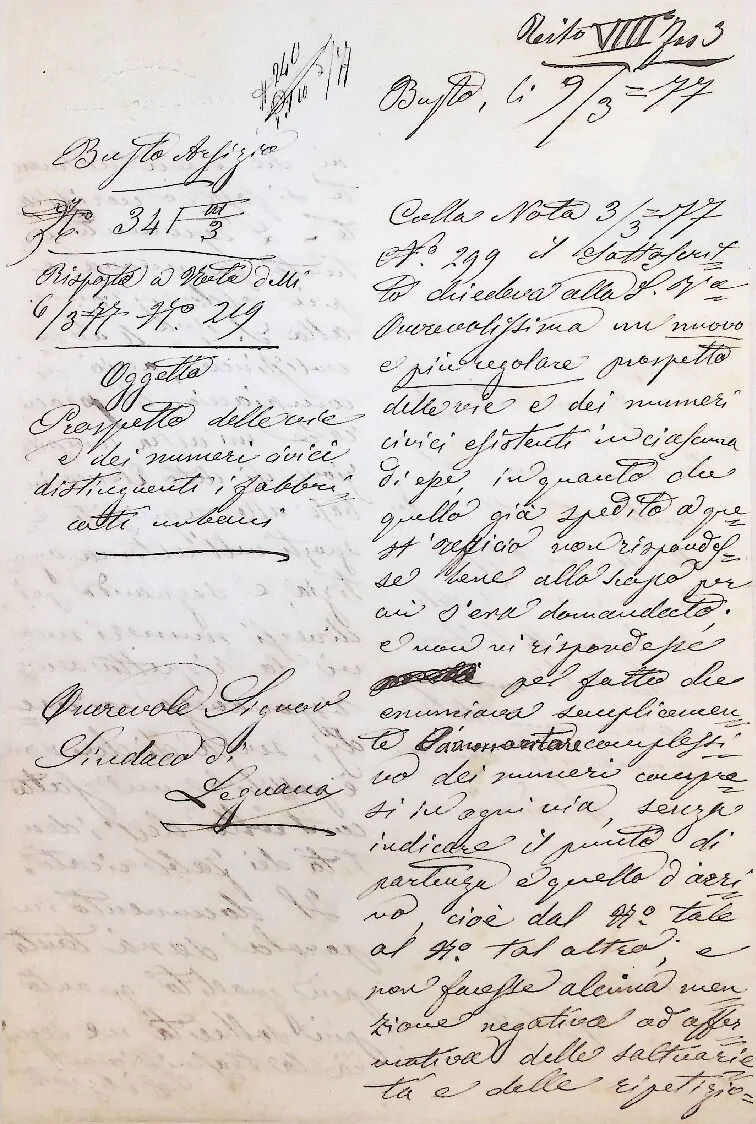 VIIII
Busto, li 9/3=77
Busto Arsizio
N.° 341
3
Risposta a Nota delli
6/3 77 N.° 219
Oggetto
Prospetto delle vie
e dei numeri civici
distinguenti i fabbri-
cati urbani
Onorevole Signor
Sindaco di
Legnano
Colla Nota 3/3=77
N.° 299 il Sottoscrit=
to chiedeva alla S. V.a
Onorevolissima un nuovo
e più regolare prospetto
delle vie e dei numeri
civici esistenti in ciascuna
di esse, in quanto che
quello già spedito a que=
st'ufficio non rispondes=
se bene allo scopo per
cui s'era domandato;
e non vi rispondesse
pel fatto che
enunciava semplicemen=
te l'ammontare complessi=
vo dei numeri compre=
si in ogni via, senza
indicare il punto di
partenza e quello d'arri=
vo, cioè dal N.° tale
al N.° tal altro; e
non facesse alcuna men=
zione negativa od affer=
mativa delle saltuarie=
tà e delle ripetizio=